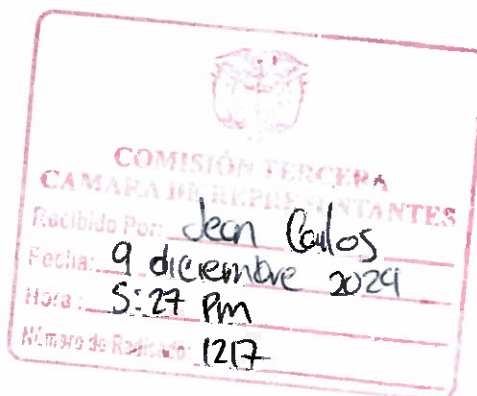 COMISIÓN TERCERA
CAMARA DE REPRESENTANTES
Recibido Por: Jean Carlos
Fecha: 9 diciembre 2024
Hora: 5:27 Pm
Número de Radicado: 1217